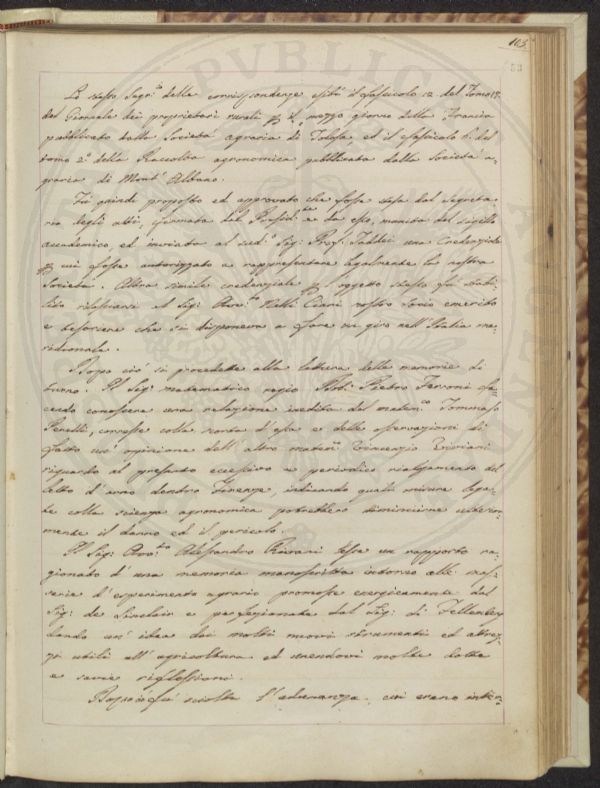 103.
33
Lo stesso Segr.o delle corrispondenze esibì il fascicolo 12 del Tomo
del Giornale dei proprietari rurali p il mezzo giorno della Francia
pubblicato dalla Società agraria di Tolosa, ed il fascicolo 6.o del
tomo 2.o della Raccolta agronomica pubblicata dalla Società a-
graria di Mont' Albano.
Fù quindi proposto ed approvato che fosse stesa dal Segreta-
rio degli atti, e firmata dal Presid.e e da esso, munita del sigillo
accademico, ed inviata al sud.o Sig: Prof. Taddei una Credenziale
p cui fosse autorizzato a rappresentare legalmente la nostra
Società. Altra simile credenziale p l'oggetto stesso fù stabi-
lito rilasciarsi al Sig: Avv.to Nelli Ciani nostro Socio emerito
e tesoriere che si disponeva a fare un giro nell'Italia me-
ridionale.
Dopo ciò si procedette alla lettura delle memorie di
turno. Il Sig: matematico regio Ab: Pietro Ferroni fa-
cendo conoscere una relazione inedita del matem.co Tommaso
Perelli, corresse colla scorta d'essa e delle osservazioni di
fatto un'opinione dell'altro matem.o Vincenzio Viviani
riguardo al presunto eccessivo e periodico rialzamento del
letto d'Arno dentro Firenze, indicando quali misure lega-
te colla scienza agronomica potrebbero diminuirne ulterior-
mente il danno ed il pericolo.
Il Sig: Avv.to Alessandro Rivani lesse un rapporto ra-
gionato d'una memoria manoscritta intorno alle mas-
serie d'esperimento agrario promosse energicamente dal
Sig: de Sinclair e perfezionate dal Sig: di Fellenberg
dando un'idea dei molti nuovi strumenti ed attrez-
zi utili all'agricoltura ed unendovi molte dotte
e savie riflessioni.
Dopo ciò fù sciolta l'adunanza cui erano inter-